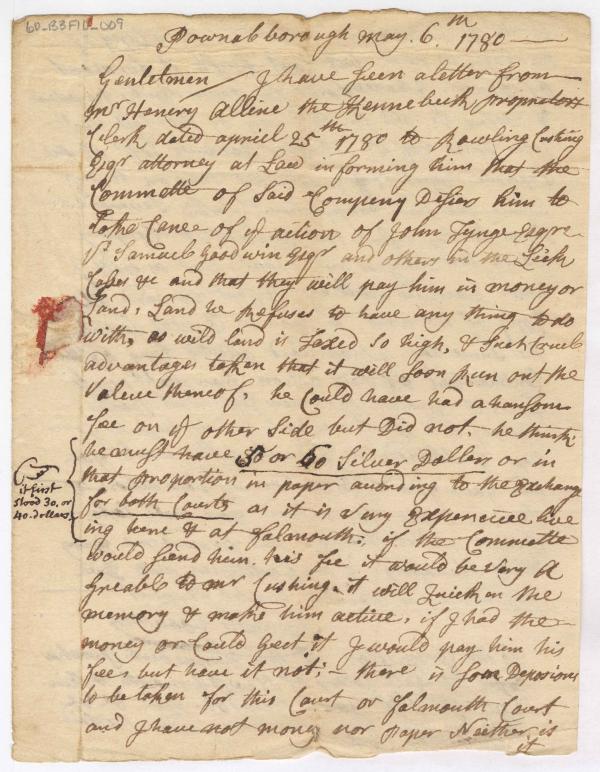 60_B3F10_009
Pownalborough may. 6.th 1780
Gentelmen I have seen a letter from
mr Henery Alline the Kennebeck proprietors
Clerk dated apriel 25th 1780 to Rowling Cushing
Esqr attorney at Law informing him that the
Committe of Said Compeny Desies him to
Take Caree of ye action of John Tynge Esqre
vs Samuel Goodwin Esqr and others in the Lick
Cases &c and that they will pay him in money or
Land, Land he Refuses to have any thing to do
with, as wild land is Taxed so high, & such Cruel
advantages taken that it will soon Run out the
Valeue thereof. he Could have had a hansom
fee on ye other Side but Did not. he thinks
he must have 50 or 60 Silver Dollers or in
that proportion in paper acording to the Exchange
for both Courts as it is very Expencive live
ing here & at falmouth. if the Committe
would send him his fee it would be very A
greable to mr Cushing. it will Quicken the
memory & make him active, if I had the
money or Could Geet it I would pay him his
fees but have it not; – there is som Deposions
to be taken for this Court or falmouth Court
and I have not mony nor Paper Neither is
it
it first
stood 30. or
40. dollars